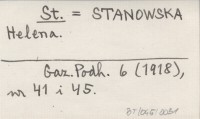 St. = STANOWSKA
Helena.
Gaz. Podh. 6 (1918),
nr 41 i 45.